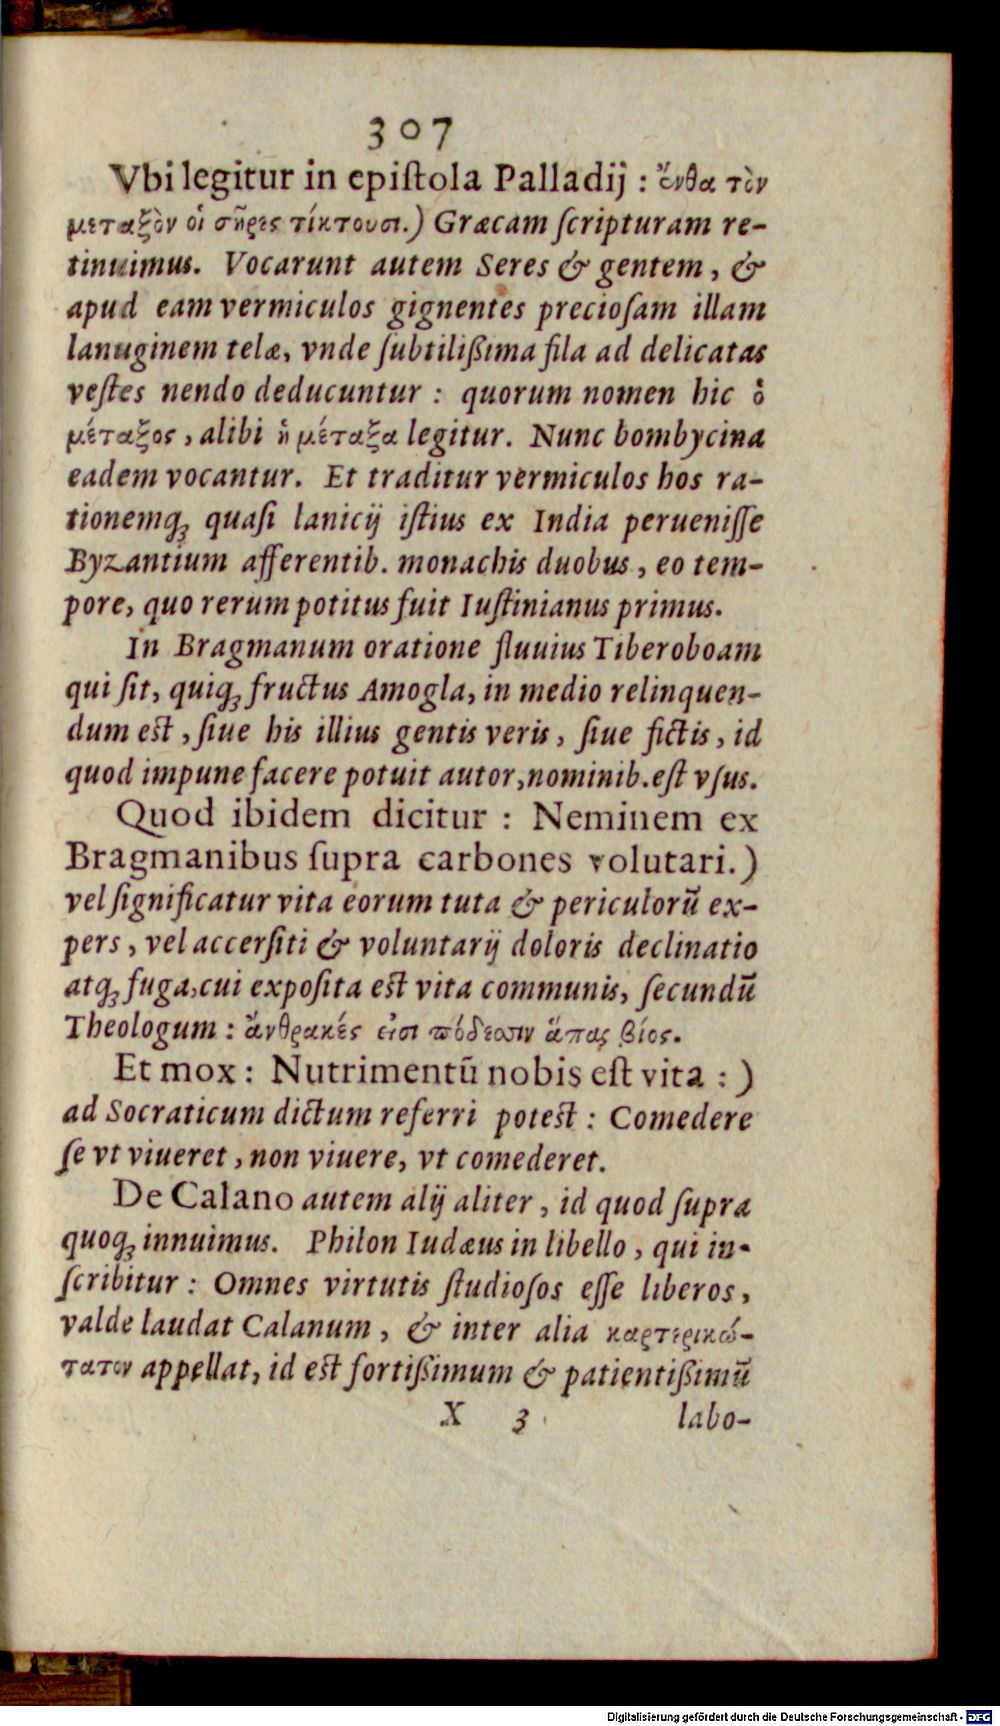 307
Vbi legitur in epiſtola Palladij : ἔνθα τὸν
μεταξὸν οἱ σῆρες τίκτουσι.) Græcam ſcripturam re-
tinuimus. Vocarunt autem Seres & gentem, &
apud eam vermiculos gignentes precioſam illam
lanuginem telæ, vnde ſubtilißima fila ad delicatas
veſtes nendo deducuntur : quorum nomen hic ὁ
μέταξος, alibi ἡ μέταξα legitur. Nunc bombycina
eadem vocantur. Et traditur vermiculos hos ra-
tionemq́ꝫ quaſi lanicij iſtius ex India perueniſſe
Byzantium afferentib. monachis duobus, eo tem-
pore, quo rerum potitus fuit Iuſtinianus primus.
In Bragmanum oratione fluuius Tiberoboam
qui ſit, quiq́ꝫ fructus Amogla, in medio relinquen-
dum eſt, ſiue his illius gentis veris, ſiue fictis, id
quod impune facere potuit autor, nominib. eſt vſus.
Quod ibidem dicitur : Neminem ex
Bragmanibus ſupra carbones volutari.)
vel ſignificatur vita eorum tuta & periculorū ex-
pers, vel accerſiti & voluntarij doloris declinatio
atq́ꝫ fuga, cui expoſita eſt vita communis, ſecundū
Theologum : ἄνθρακές εἰσι πόδεσσιν ἅπας βίος.
Et mox : Nutrimentū nobis eſt vita : )
ad Socraticum dictum referri poteſt : Comedere
ſe vt viueret, non viuere, vt comederet.
De Calano autem alij aliter, id quod ſupra
quoq́ꝫ innuimus. Philon Iudæus in libello, qui in-
ſcribitur : Omnes virtutis ſtudioſos eſſe liberos,
valde laudat Calanum, & inter alia καρτερικώ-
τατον appellat, id eſt fortißimum & patientißimū
X 3 labo-
Digitalisierung gefördert durch die Deutsche Forschungsgemeinschaft - DFG